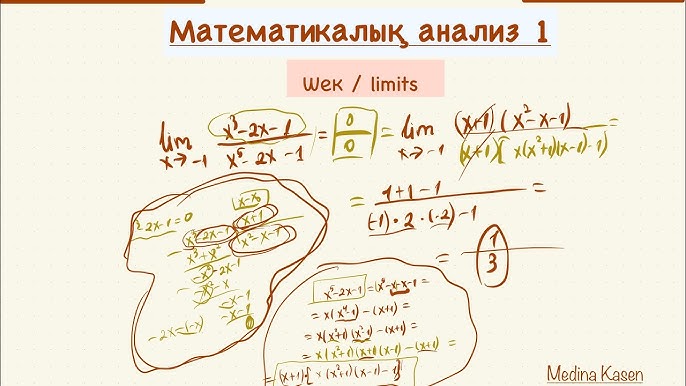 Математикалық анализ 1
Шек / limits
lim x→-1 x³-2x-1 / x⁵-2x-1 = 0/0 = lim x→-1 (x+1)(x²-x-1) / (x+1)[x(x²+1)(x-1)-1] =
= 1+1-1 / (-1)·2·(-2)-1 =
= 1/3
-2x-1=0
x-x₀
x³-2x-1
x+1
x³+x²
x²-x-1
-x²-2x-1
-x²-x
-x-1
-x-1
0
-2x=(-x)
x⁵-2x-1=(x⁵-x-x-1=
=x(x⁴-1)-(x+1)=
=x(x²+1)(x²-1)-(x+1)=
=x(x²+1)(x+1)(x-1)-(x+1)=
=(x+1)[x(x²+1)(x-1)-1]
Medina Kasen